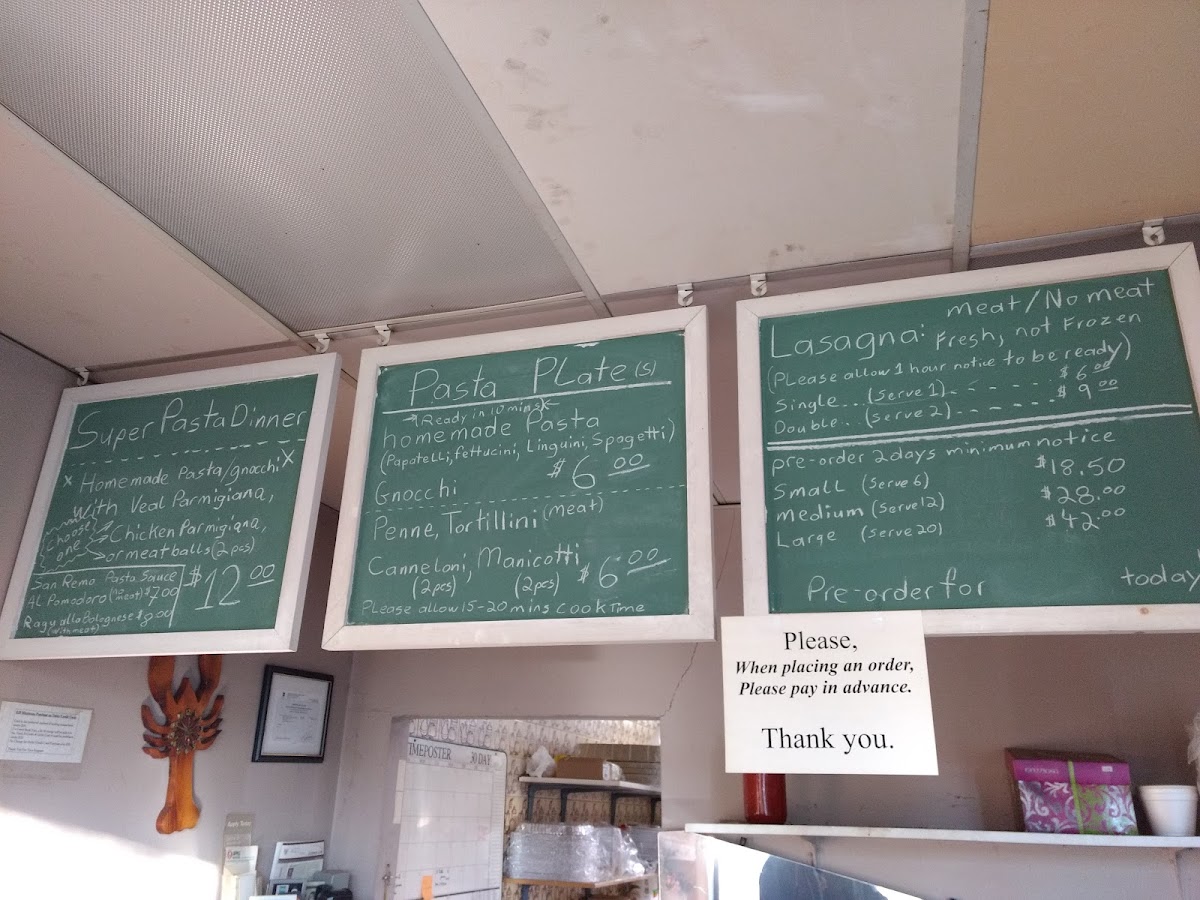 Super Pasta Dinner
x Homemade Pasta/gnocchi x
With Veal Parmigiana,
Choose one
Chicken Parmigiana,
or meatballs (2 pcs)
San Remo Pasta Sauce
Al Pomodoro (no meat) $7.00
Ragu alla Bolognese $8.00
(with meat)
$12.00
Pasta PLate(s)
Ready in 10 mins
homemade Pasta
(Papatelli, fettucini, Linguini, Spagetti)
Gnocchi $6.00
Penne, Tortillini (meat)
Canneloni, Manicotti
(2pcs) (2pcs) $6.00
Please allow 15-20 mins cook Time
meat/No meat
Lasagna: Fresh, not Frozen
(PLease allow 1 hour notice to be ready)
Single... (Serve 1) - - - - - $6.00
Double... (Serve 2) - - - - - $9.00
pre-order 2 days minimum notice
Small (Serve 6) $18.50
Medium (Serve 12) $28.00
Large (Serve 20) $42.00
Pre-order for today
Please,
When placing an order,
Please pay in advance.
Thank you.
30 DAY